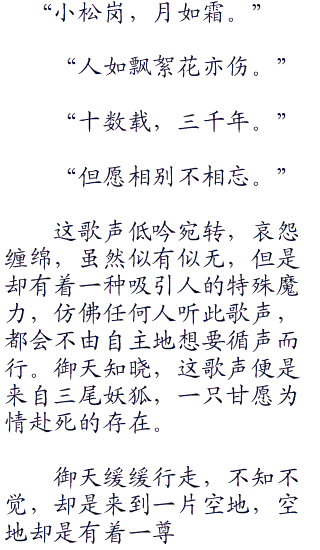 “小松岗，月如霜。”
“人如飘絮花亦伤。”
“十数载，三千年。”
“但愿相别不相忘。”
这歌声低吟宛转，哀怨
缠绵，虽然似有似无，但是
却有着一种吸引人的特殊魔
力，仿佛任何人听此歌声，
都会不由自主地想要循声而
行。御天知晓，这歌声便是
来自三尾妖狐，一只甘愿为
情赴死的存在。
御天缓缓行走，不知不
觉，却是来到一片空地，空
地却是有着一尊